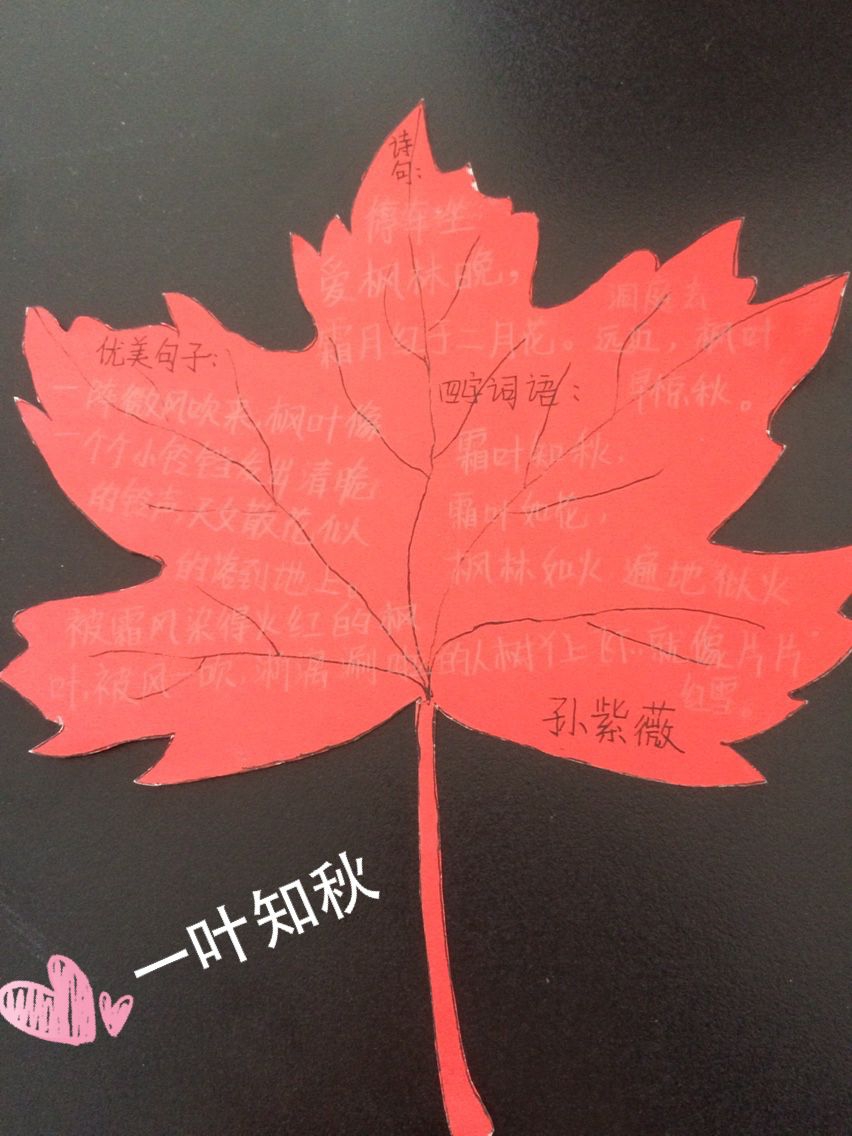 诗句：
停车坐
爱枫林晚，
霜月红于二月花。
洞庭去
远近，枫叶
早惊秋。
优美句子：
一阵微风吹来，枫叶像
一个个小铃铛发出清脆
的铃声，天女散花似
的落到地上。
被霜风染得火红的枫
叶，被风一吹，
的从树丫上飞
就像片片
红雪。
四字词语：
霜叶知秋，
霜叶如花，
枫林如火 遍地似火
孙紫薇
一叶知秋